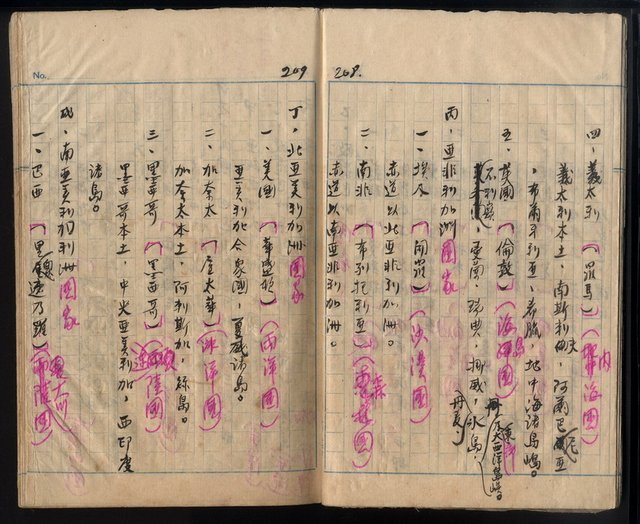 208.
四、義太利 (羅馬) (內海國)
義太利本土、南斯利夫、阿爾巴尼亞
、布爾牙利亞、希臘、地中海諸島嶼。
五、英國 (倫敦) (海島國)
不列顛
愛蘭、瑞典、挪威、冰島、
丹麥
及大西洋島嶼。
丙、亞非利加洲國家
一、埃及 (開羅) (沙漠國)
赤道以北亞非利加洲。
二、南非 (布利托利亞) (森林國)
赤道以南亞非利加洲。
209
No.
丁、北亞美利加洲國家
一、美國 (華盛頓) (兩洋國)
亞美利加合眾國、夏威夷諸島。
二、加奈太 (屋太華) (冰洋國)
加奈太本土、阿利斯加、綠島。
三、墨西哥 (墨西哥)
墨西哥本土、中央亞美利加、西印度
諸島。
戊、南亞美利加洲國家
一、巴西 (里約熱內羅) (大川國)